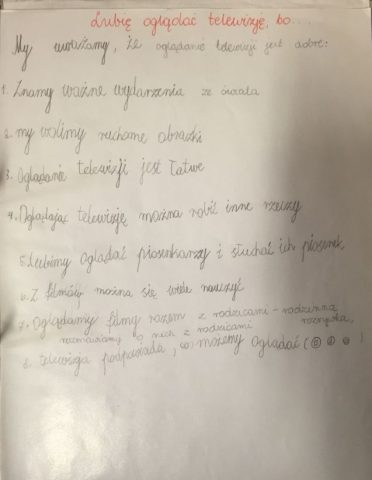 Lubię oglądać telewizję, bo....
My uważamy, że oglądanie telewizji jest dobre:
1. Znamy ważne wydarzenia ze świata
2. my wolimy ruchome obrazki
3. Oglądanie telewizji jest łatwe
4. Oglądając telewizję można robić inne rzeczy
5. Lubimy oglądać piosenkarzy i słuchać ich piosenek
6. Z filmów można się wiele nauczyć
7. Oglądamy filmy razem z rodzicami - rodzinna rozrywka,
rozmawiamy o nich z rodzicami
8. telewizja podpowiada, co możemy oglądać (